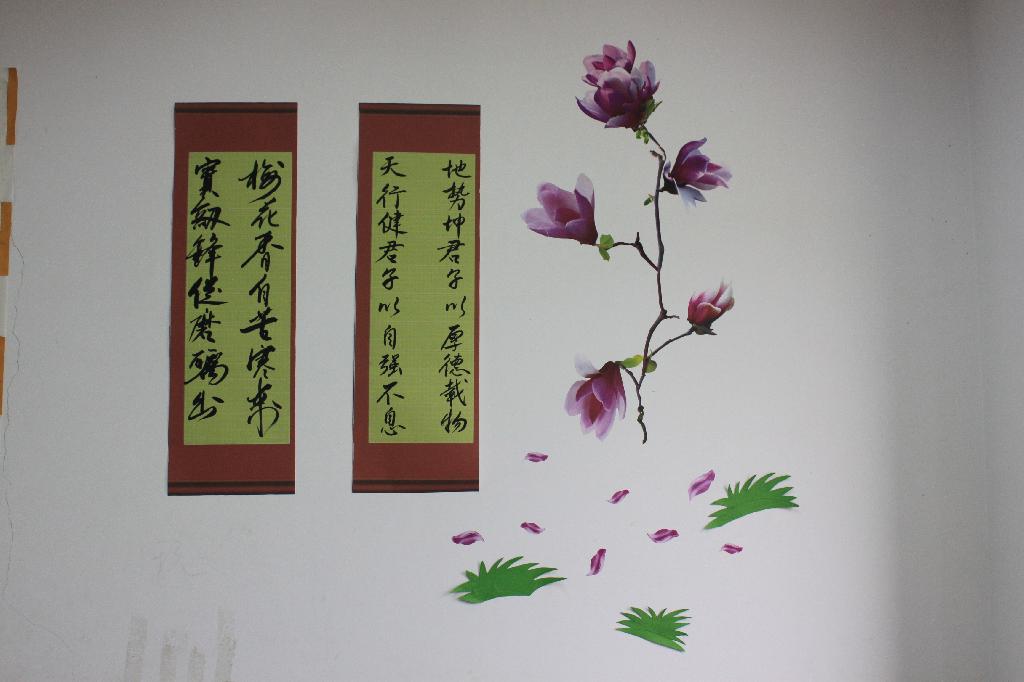 梅花香自苦寒来
寳劔鋒從磨礪出
地势坤君子以厚德载物
天行健君子以自强不息